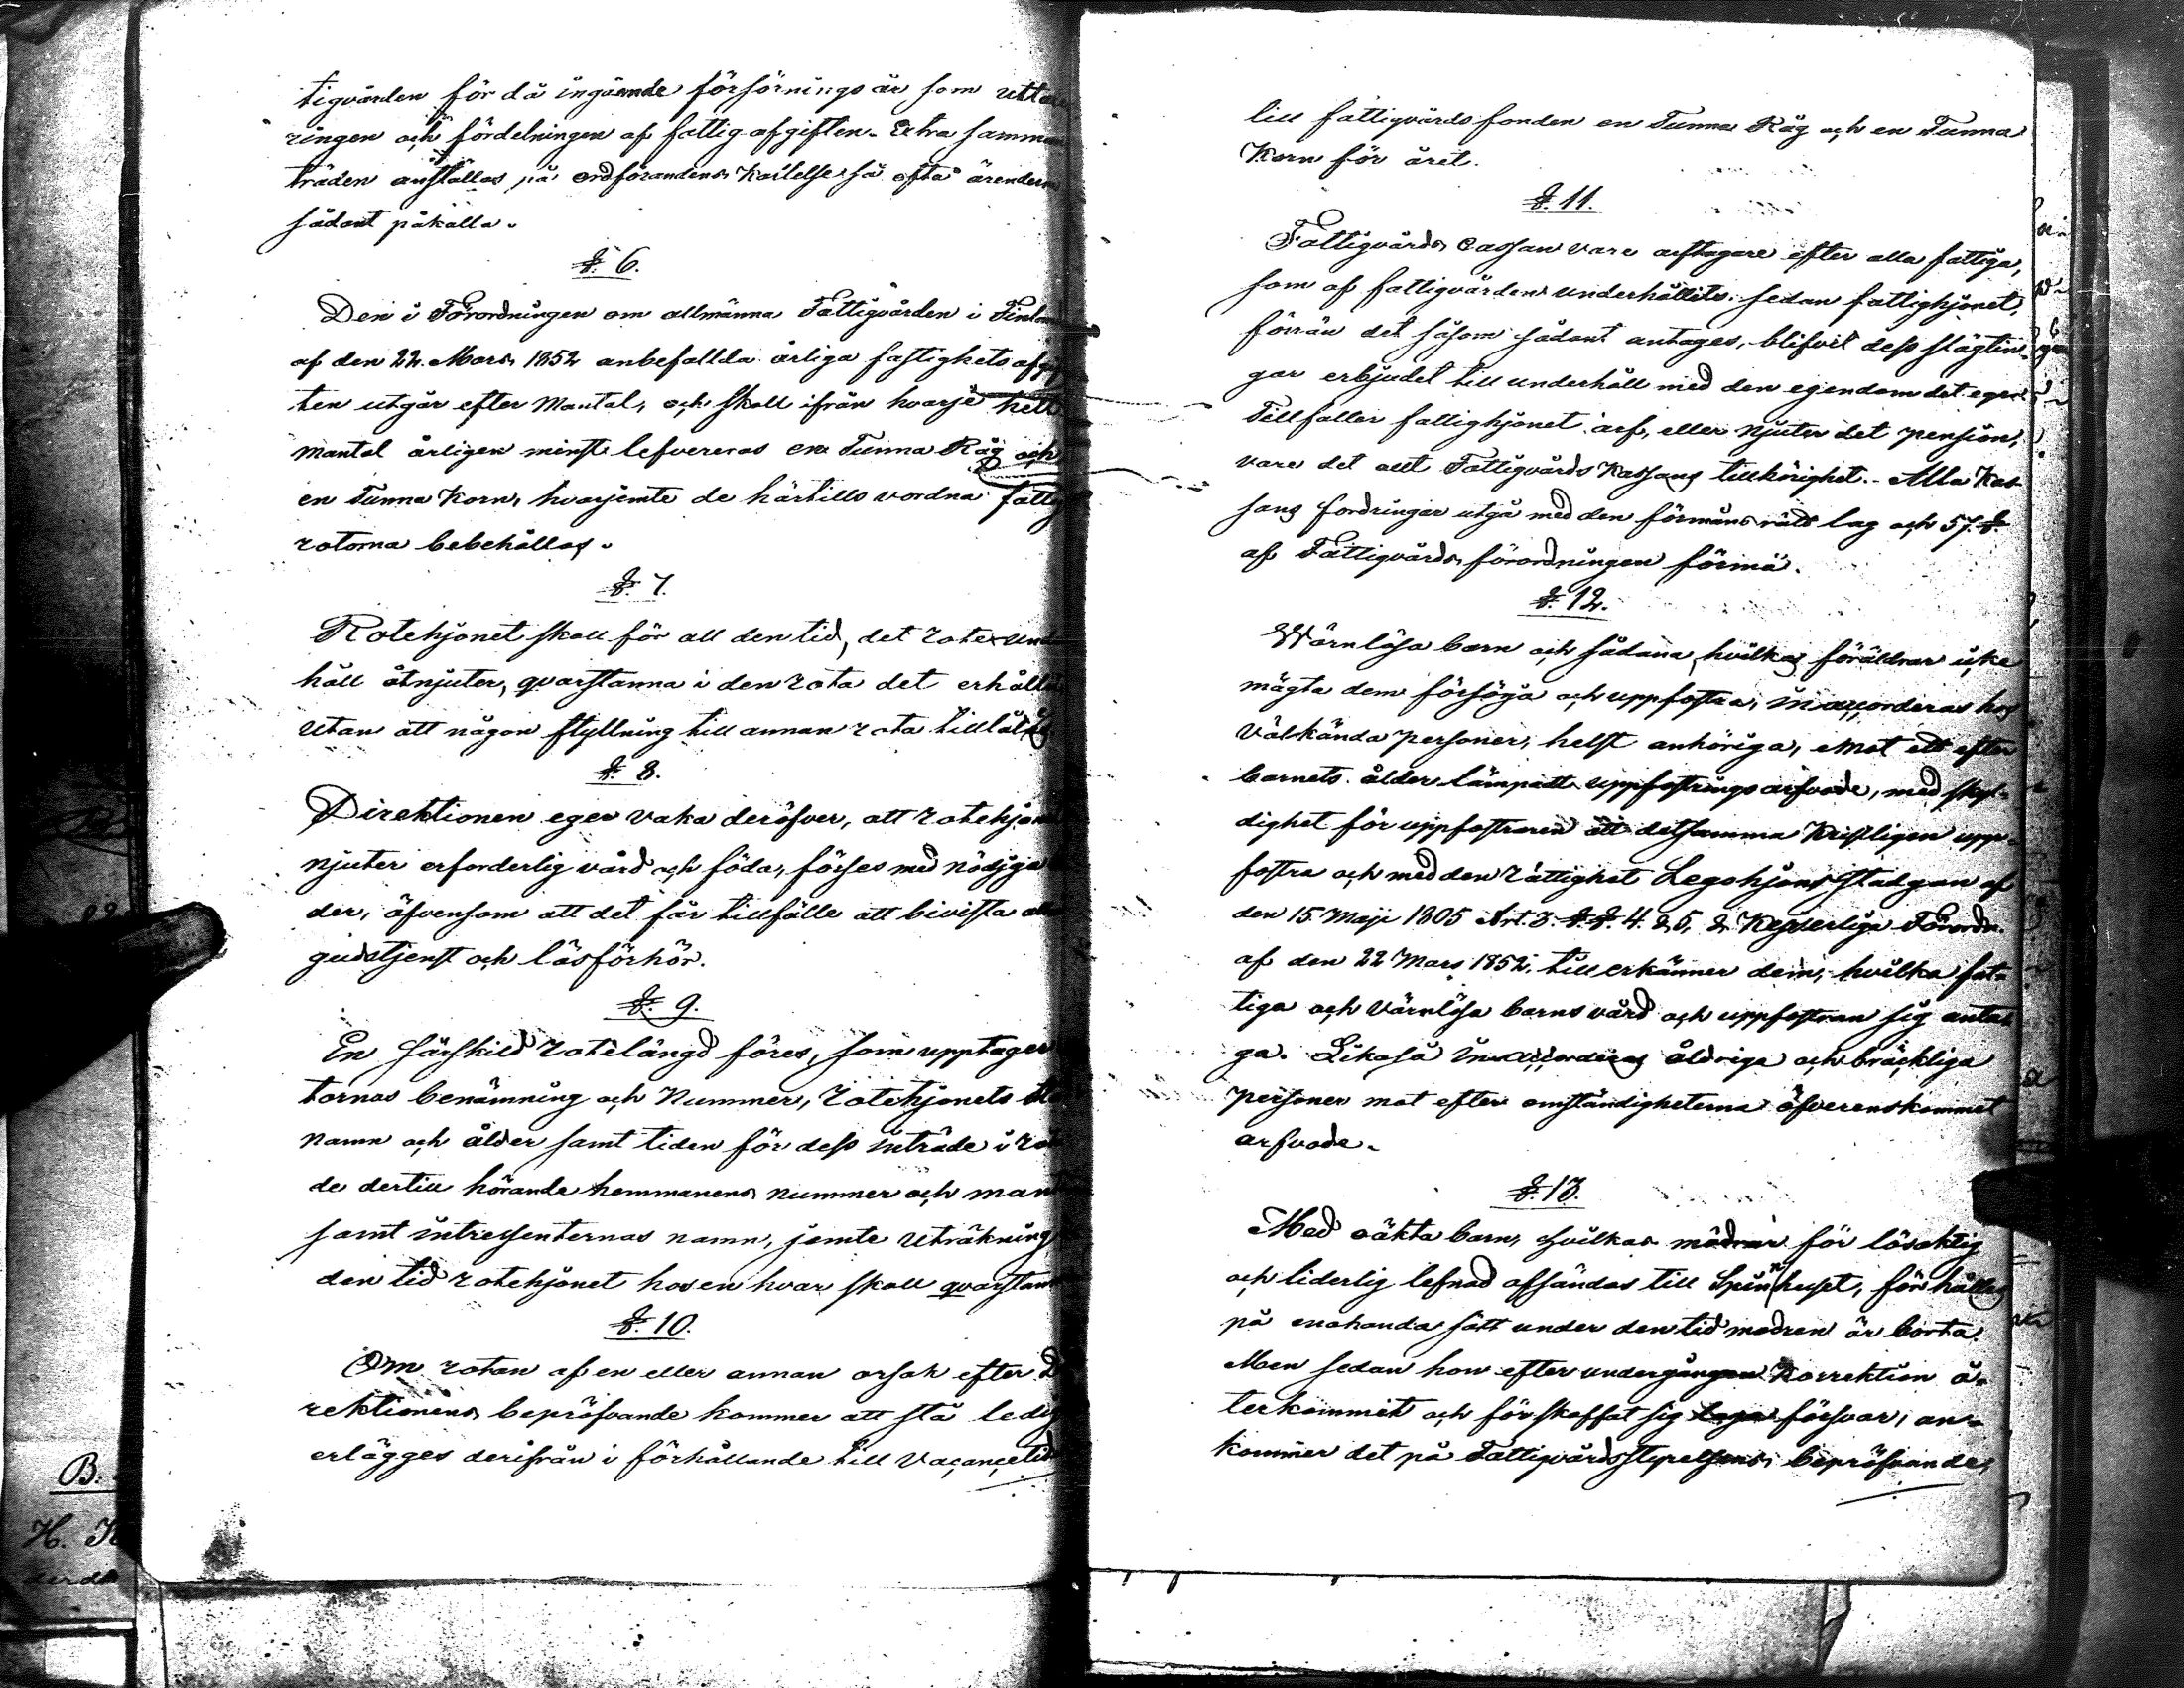 tigvården för då ingående försörjnings år som uttax
ringen och fördelningen af fattig afgiften. Extra samman
träden anställas på ordförandens kallelse så ofta ärenderna
sådant påkalla.
§. 6.
Den i Förordningen om allmänna Fattigvården i Finland
af den 22. Mars 1852 anbefallda årliga fastighets afgif
ten utgår efter Mantal, och skall ifrån hvarje helt
mantal årligen minst lefvereras en Tunna Råg och
en Tunna Korn, hvarjemte de härtills vordna fattig
rotorna bebehållas.
§. 7.
Rotehjonet skall för all den tid, det rote und
håll åtnjuter, qvarstanna i den rota det erhållit
utan att någon flyttning till annan rota tillåtes
§. 8.
Direktionen eger vaka deröfver, att rotehjonet
njuter erforderlig vård och föda, förses med nödiga
der, äfvensom att det får tillfälle att bivista all
gudstjenst och läsförhör.
§. 9.
En särskild rotelängd föres, som upptager
tornas benämning och Nummer, Rotehjonets
namn och ålder samt tiden för dess inträde i ro
de dertill hörande hemmanens nummer och mant
samt intressenternas namn, jemte uträkning
den tid rotehjonet hos en hvar skall qvarstan
§. 10.
Om rotan af en eller annan orsak efter Di
rektionens bepröfvande kommer att stå ledig
erlägges derifrån i förhållande till Vacancetid
till fattigvårds fonden en Tunna Råg och en Tunna
Korn för året.
§. 11.
Fattigvårds Cassan vare arftagare efter alla fattiga,
som af fattigvården underhållits. sedan fattighjonet,
förrän det såsom sådant antages, blifvit dess slägtin-
gar erbjudet till underhåll med den egendom det eger
Tillfaller fattighjonet arf, eller njuter det pension,
vare det allt Fattigvårds Kassans tillhörighet. Alla Kas-
sans fordringar utgå med den förmåns rätt lag och 57. §.
af Fattigvårds förordningen förmå.
§. 12.
Wärnlösa barn och sådana, hvilkas föräldrar icke
mägta dem försörja och uppfostra, inaccorderas hos
välkända personer, helst anhöriga, emot ett efter
barnets ålder lämpadt uppfostrings arfvode, med skyl-
dighet för uppfostraren att detsamma Kristligen upp-
fostra och med den rättighet Legohjons Stadgan af
den 15 Maji 1805 Art. 3. §.§. 4. & 5, & Kejserliga Förordn.
af den 22 Mars 1852, till erkänner dem, hvilka fat-
tiga och värnlösa barns vård och uppfostran sig anta-
ga. Likaså inaccorderas åldriga och bräckliga
personer mot efter omständigheterna öfverenskommet
arfvode.
§. 13.
Med oäkta barn, hvilkas mödrar för lösaktig
och liderlig lefnad afsändas till Spinnhuset, förhålles
på enahanda sätt under den tid modren är borta.
Men sedan hon efter undergången Korrektion å-
terkommit och förskaffat sig laga försvar, an-
kommer det på Fattigvårdsstyrelsens bepröfvande,
B.
H.